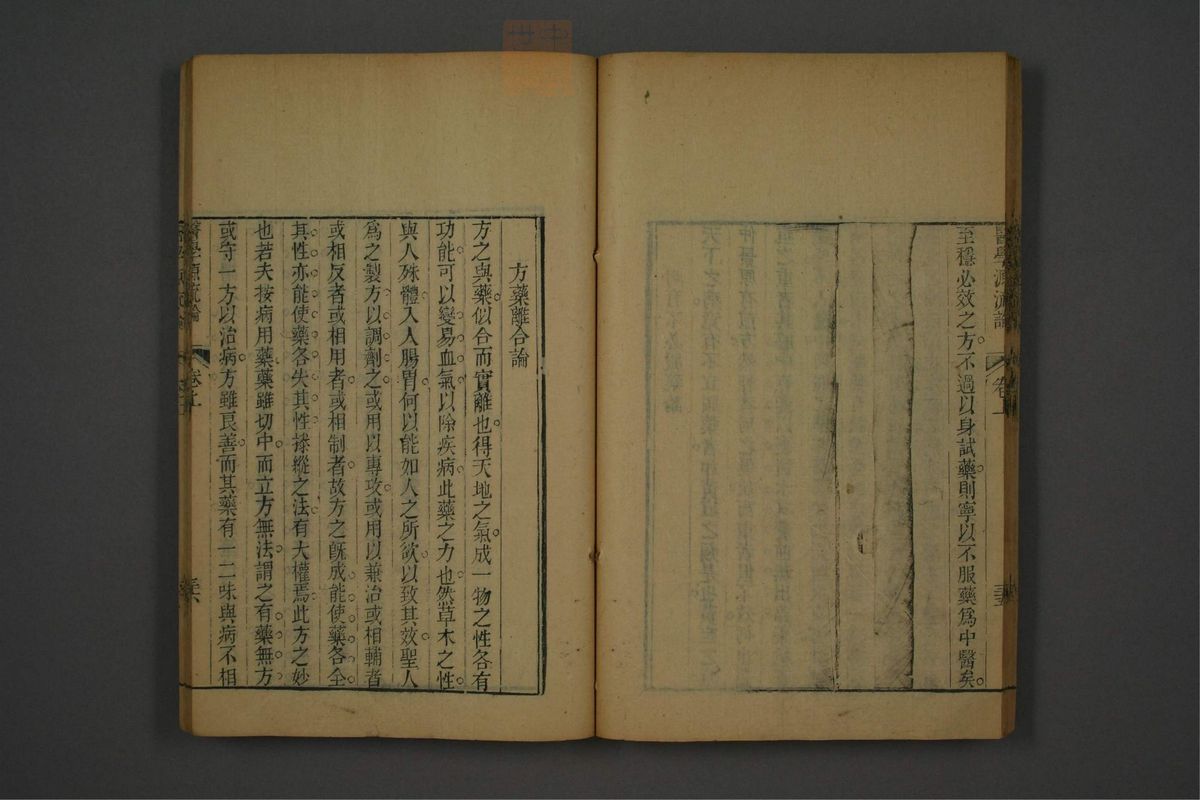 醫學源流論
卷上
至穩必效之方不過以身試藥則寧以不服藥爲中醫矣
方藥離合論
方之與藥似合而實離也得天地之氣成一物之性各有
功能可以變易血氣以除疾病此藥之力也然草木之性
與人殊體入人腸胃何以能如人之所欲以致其效聖人
爲之製方以調劑之或用以專攻或用以兼治或相輔者
或相反者或相用者或相制者故方之旣成能使藥各全
其性亦能使藥各失其性操縱之法有大權焉此方之妙
也若夫按病用藥藥雖切中而立方無法謂之有藥無方
或守一方以治病方雖良善而其藥有一二味與病不相
醫學源流論
卷上